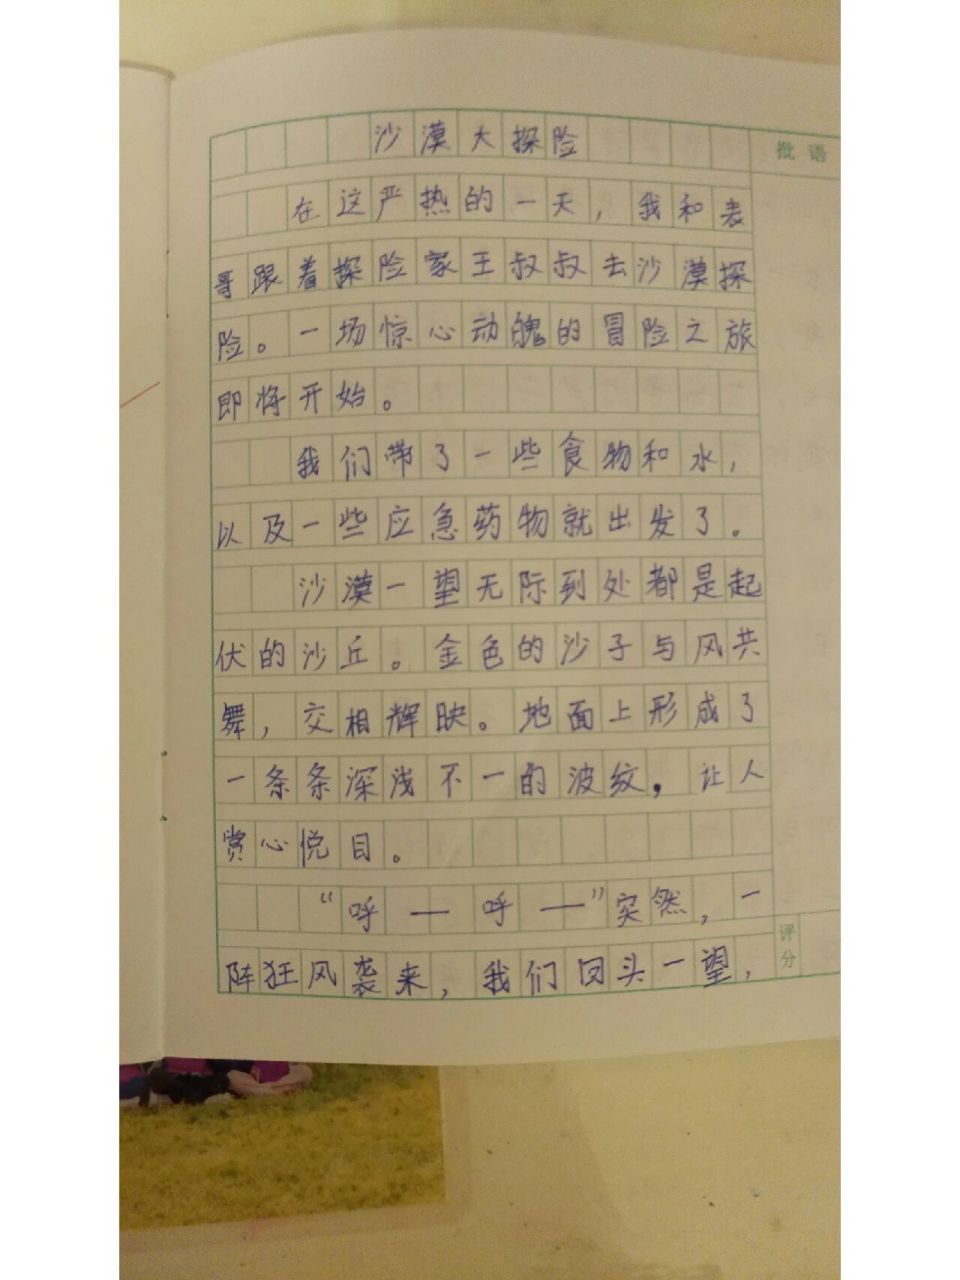 沙漠大探险
批语
在这严热的一天，我和表
哥跟着探险家王叔叔去沙漠探
险。一场惊心动魄的冒险之旅
即将开始。
我们带了一些食物和水，
以及一些应急药物就出发了。
沙漠一望无际到处都是起
伏的沙丘。金色的沙子与风共
舞，交相辉映。地面上形成了
一条条深浅不一的波纹，让人
赏心悦目。
“呼——呼——”突然，一
阵狂风袭来，我们回头一望，
评分